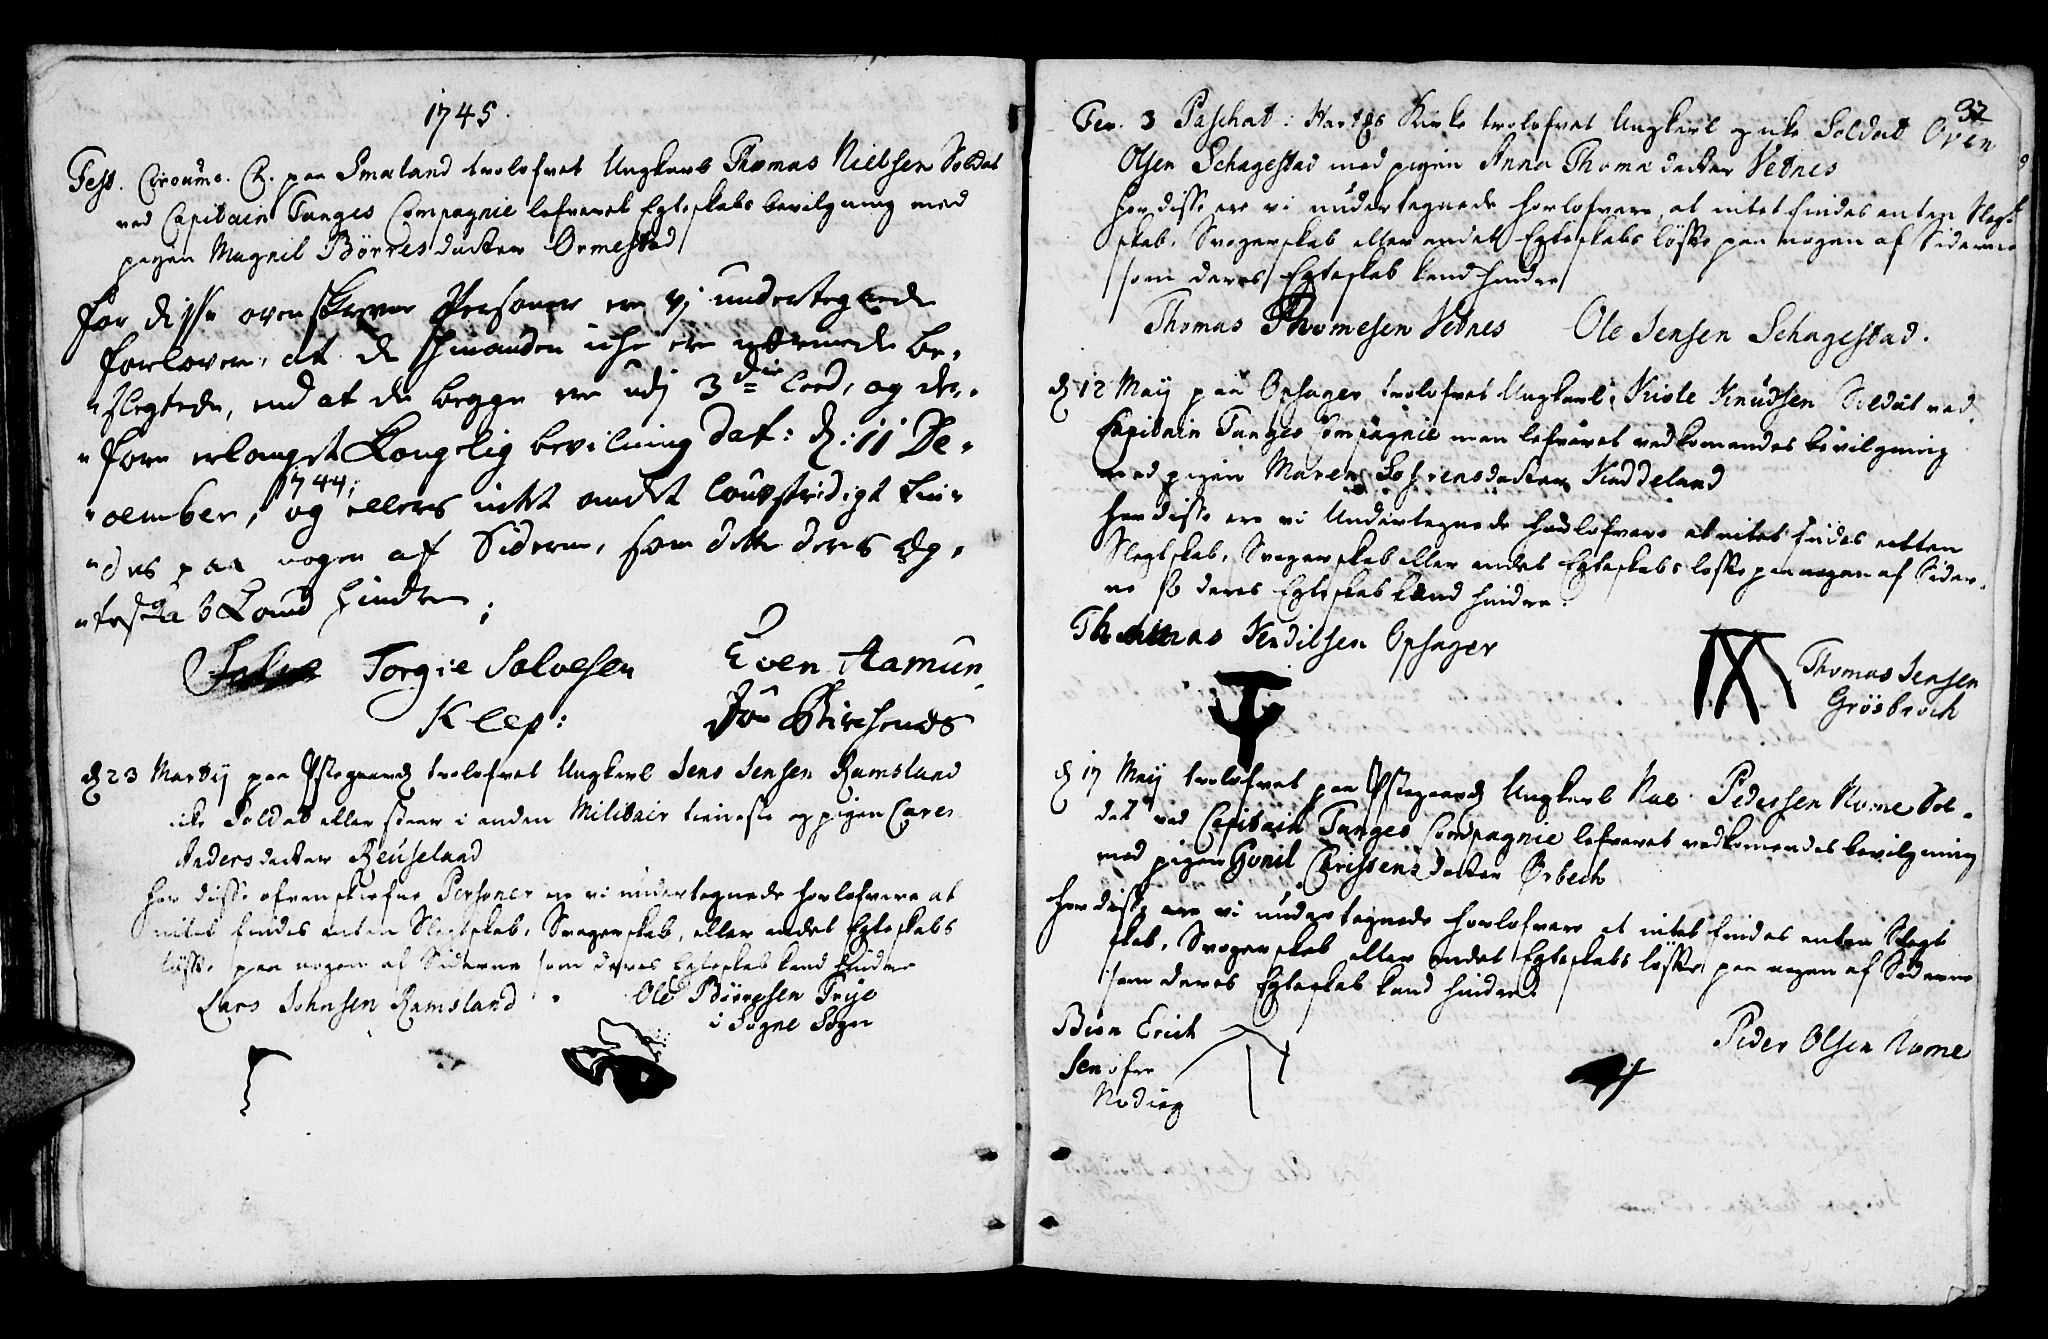 1745.
Fest. Circumc. C. paa Imeland trolofvet Ungkarl Thomas Nielsen Soldat
ved Capitain Tanges Compagnie lefveret Egteskabs bevilgning med
pigen Magnil Börres datter Ormestad
for disse ovenskrevne Personer ere vj undertegnede
forlovere, at de Ehmanden iche ere nærmede be-
slegtede, end at de begge ere udj 3die Leed, og der-
fore erlanget Kongelig bevilning dat: d: 11 De-
cember, 1744; og ellers intet andet louvstridigt fin-
des paa nogen af Siderne, som dette deres Eg-
teskab kand hindre;
Torgie Salvesen Even Aamun
Kleep:
d 23 Martij paa Østegaard trolofvet Ungkarl Jens Jensen Ramsland
icke Soldat eller staar i anden Militair tieneste og pigen Caren
Anders datter Reuseland
for disse ofvenskrefne Personer ere vi undertegnede forlofvere at
intet findes enten Slegtskab, Svogerskab, eller andet Egteskabs
löfte paa nogen af Siderne som deres Egteskab kand hindre
Lars Johnsen Ramsland Ole Börresen Trÿe
i Sogne Sogn
32
Fer. 3 Paschat: Kirke trolofvet Ungkarl og icke Soldat Oven
Olsen Schagestad med pigen Anna Thomæ datter Vednes
for disse ere vi undertegnede forlofvere, at intet findes enten Slegt
skab, Svogerskab eller andet Egteskabs löfte paa nogen af Siderne
som deres Egteskab kand hindre
Thomas Thomesen Vednes Ole Jensen Schagestad.
d 12 Maij paa Opsager trolofvet Ungkarl Knudsen Soldat ved
Capitain Tanges Compagnie men lefveret vedkomendes bevilgning
med pigen Maren Sofrensdatter Kaddeland
for disse ere vi Undertegnede forlofvere at intet findes entten
Slegtskab, Svogerskab eller andet Egteskabs löfte paa nogen af Sider-
ne so deres Egteskab kand hindre.
Thomas Vendilsen Opsager
Thomas Jensen
Grösbroch
d 17 Maij trolofvet paa Østegaard Ungkarl Pedersen Nome Sol-
dat ved Capitain Tanges Compagnie lefveret vedkomendes bevilgning
med pigen Gunil Chrissens datter Ørbech
for disse ere vi undertegnede forlofvere at intet findes enten Slegt
skab, Svogerskab eller andet Egteskabs löfte paa nogen af Siderne
som deres Egteskab kand hindre.
Biørn Erich
sen øfre
Nodieg
Peder Olsen Nome